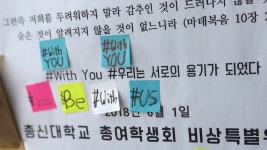 그런즉 저희를 두려워하지 말라 감추인 것이 드러나지 않을
숨은 것이 알려지지 않을 것이 없느니라 (마태복음 10장
#With YOU
#With YOU
#With You #우리는 서로의 용기가 되었다
Be
#With
#US
2018 6월 1일
총신대학교 총여학생회 비상특별위